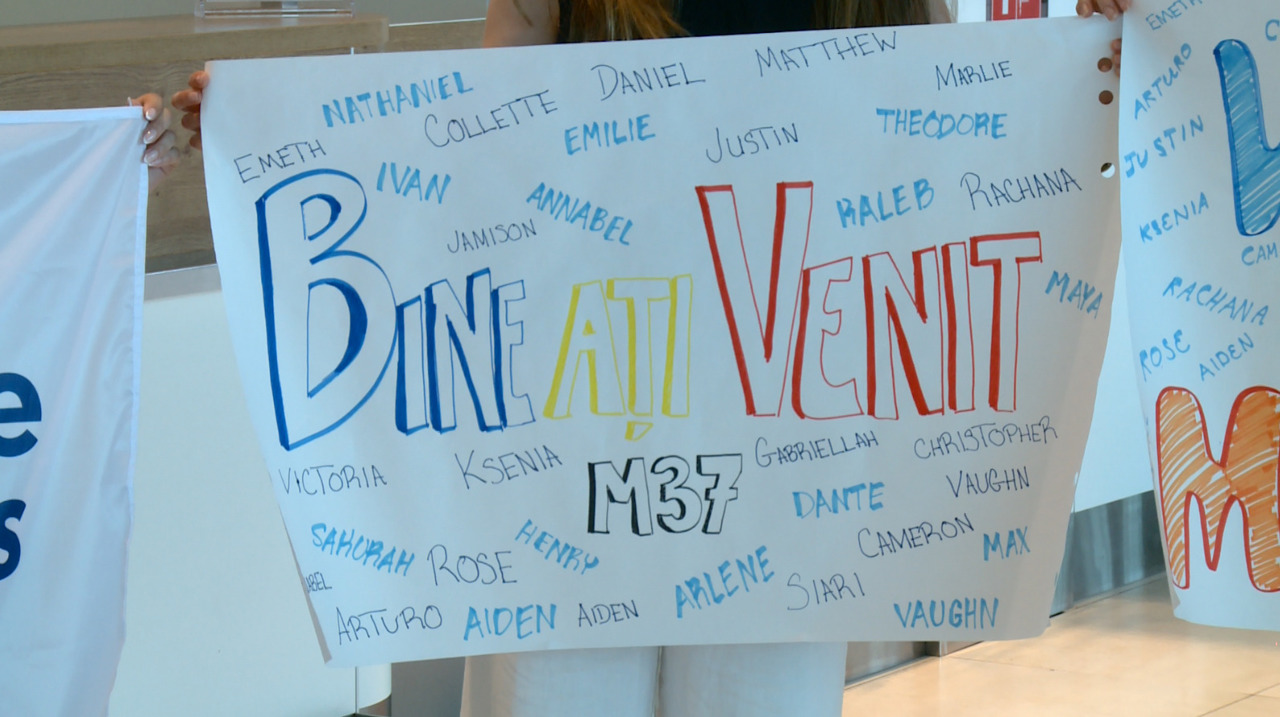 e
s
MATTHEW
DANIEL
MARLIE
NATHANIEL
COLLETTE
EMILIE
THEODORE
JUSTIN
EMETH
IVAN
ANNABEL
KALEB
RACHANA
JAMISON
MAYA
BINE AȚI VENIT
M37
VICTORIA
KSENIA
GABRIELLAH
CHRISTOPHER
VAUGHN
DANTE
SAKORAH
ROSE
HENRY
CAMERON
MAX
ABEL
ARLENE
SIARI
ARTURO
AIDEN
AIDEN
VAUGHN
EMETH
ARTURO
JUSTIN
KSENIA
CAM
RACHANA
ROSE
AIDEN
M